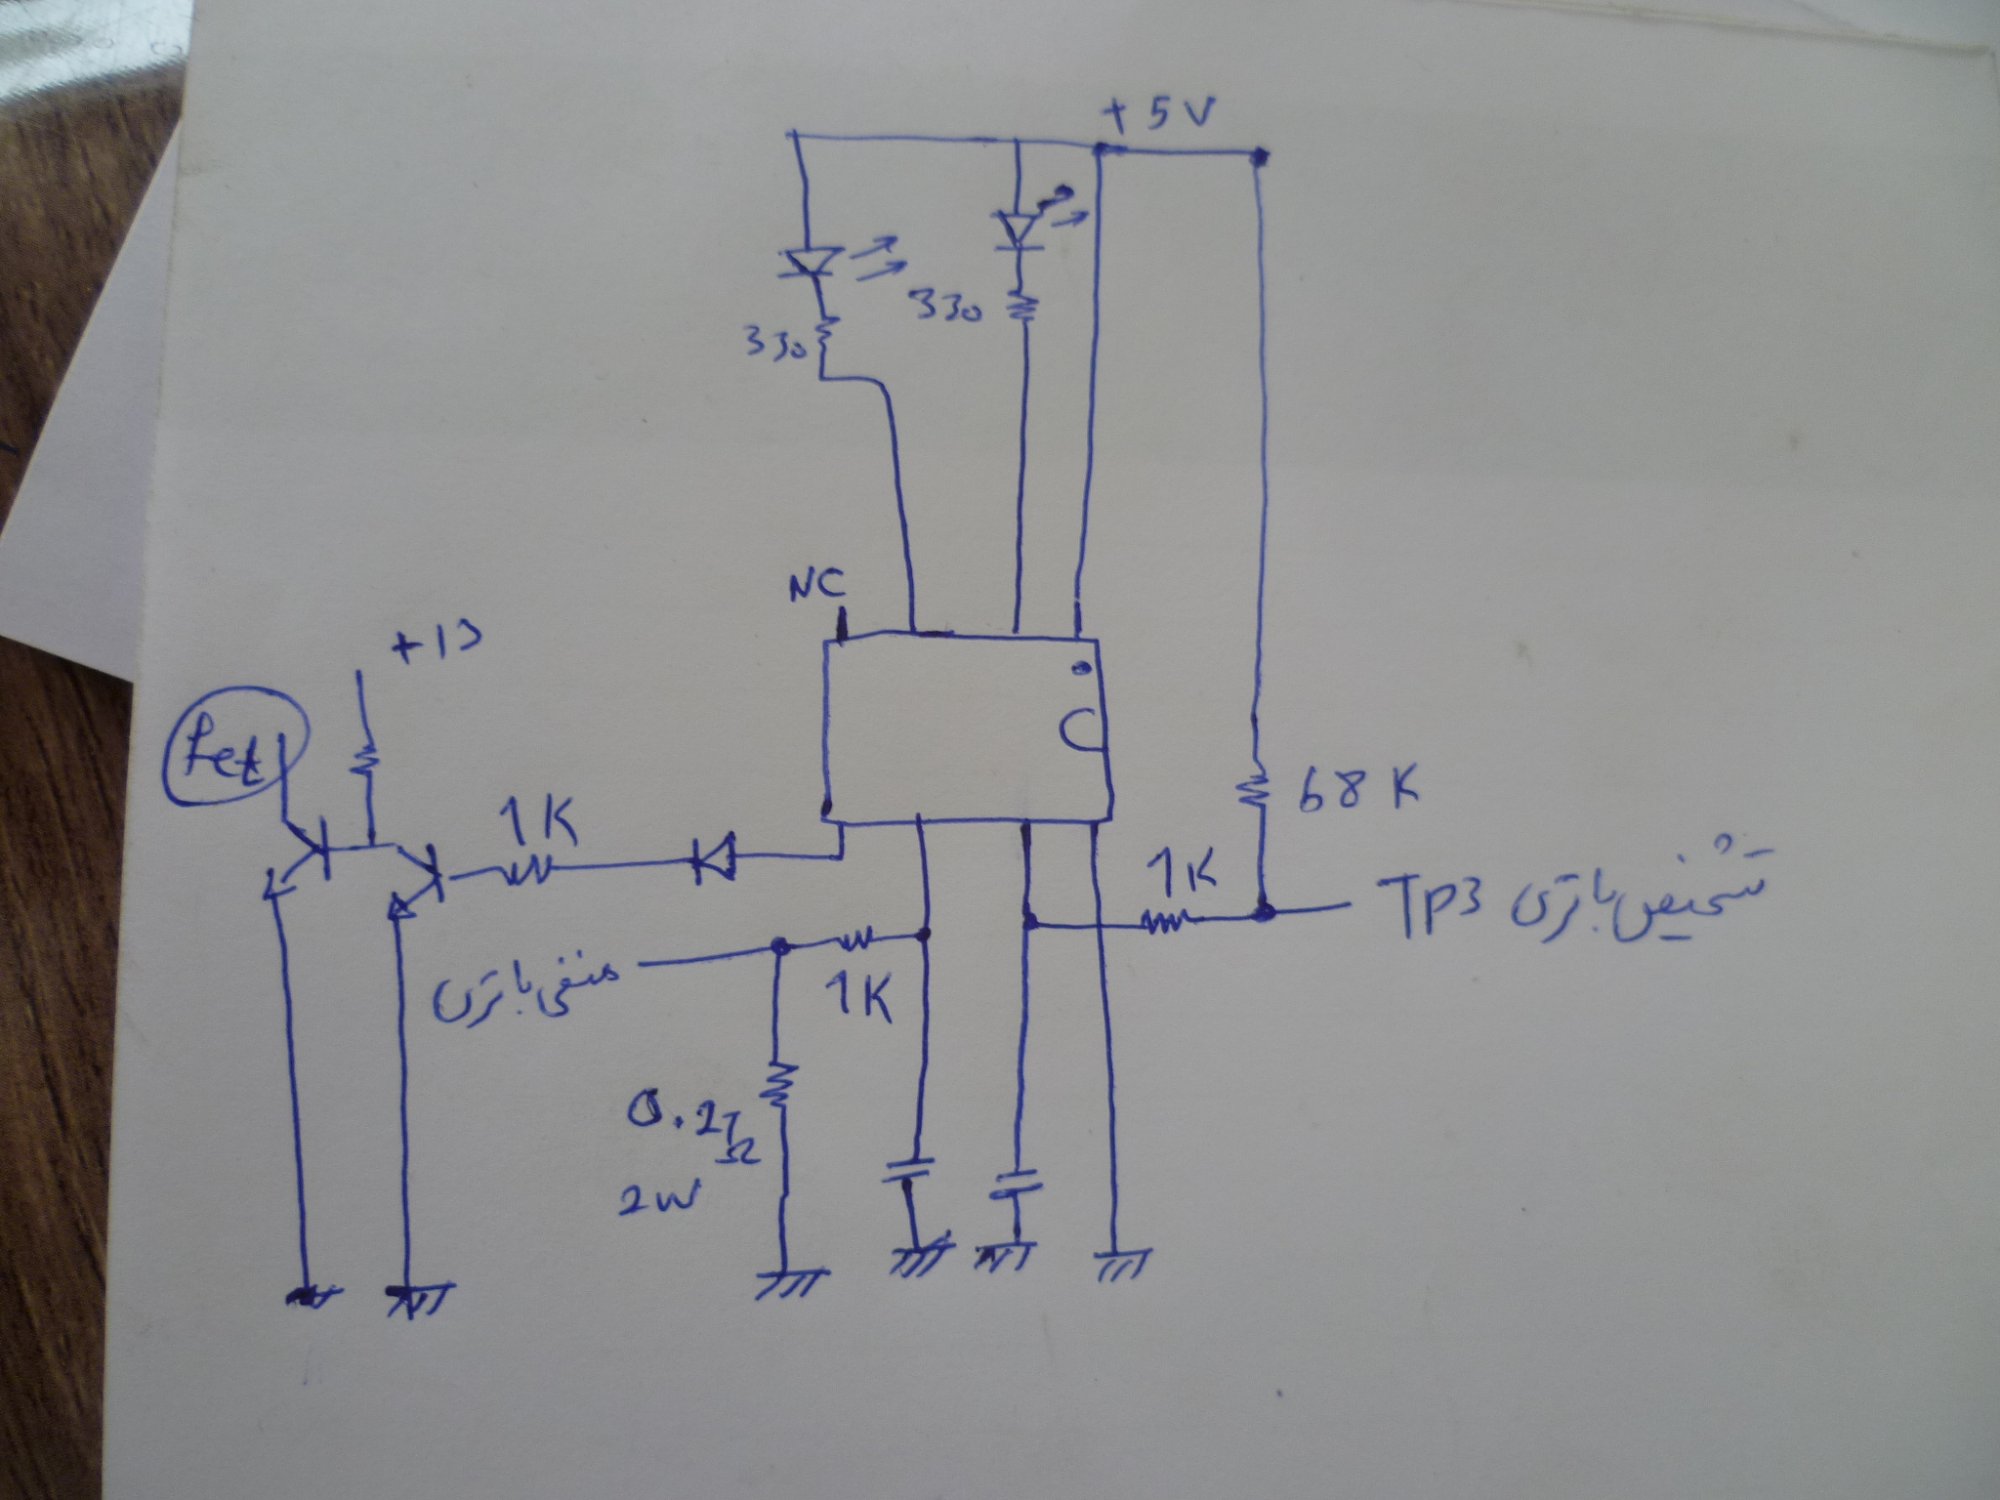 +5V
330
330
NC
+13
Fet
1K
68K
1K
TP3 تشخیص باتری
منفی باتری
1K
0.27Ω
2W